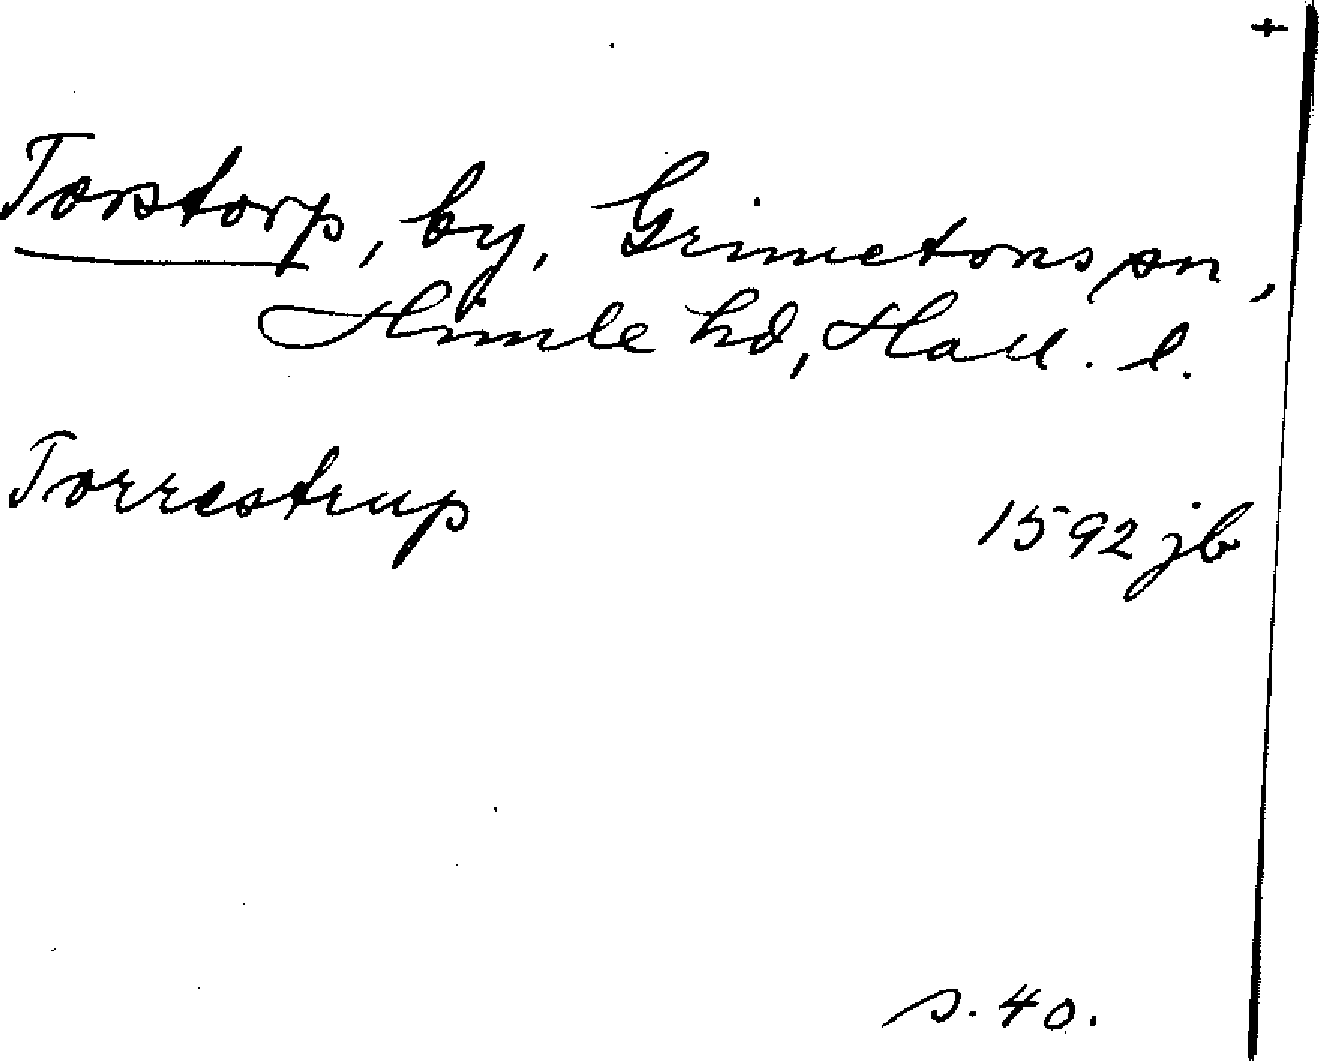 +
Torstorp, by, Grimetons sn,
Himle hd, Hall. l.
Torrestrup 1592 jb
s. 40.